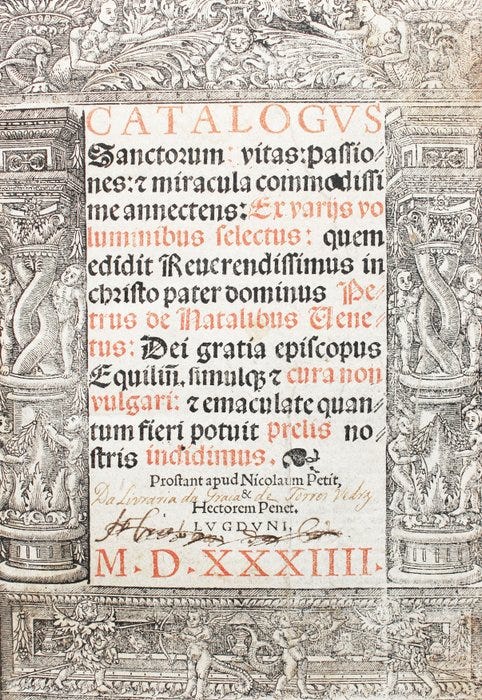 CATALOGVS
Sanctorum: vitas: passio/
nes: ⁊ miracula commodissi
me annectens: Ex varijs vo
luminibus selectus: quem
edidit Reuerendissimus in
christo pater dominus Pe/
trus de Natalibus Uene/
tus: Dei gratia episcopus
Equilin̄. simulqȝ ⁊ cura non
vulgari: ⁊ emaculate quan/
tum fieri potuit prelis no/
stris incidimus.
Prostant apud Nicolaum Petit,
Da Livraria da Graca de Torres Vedrs
&
Hectorem Penet.
LVGDVNI,
M. D. XXXIIII.